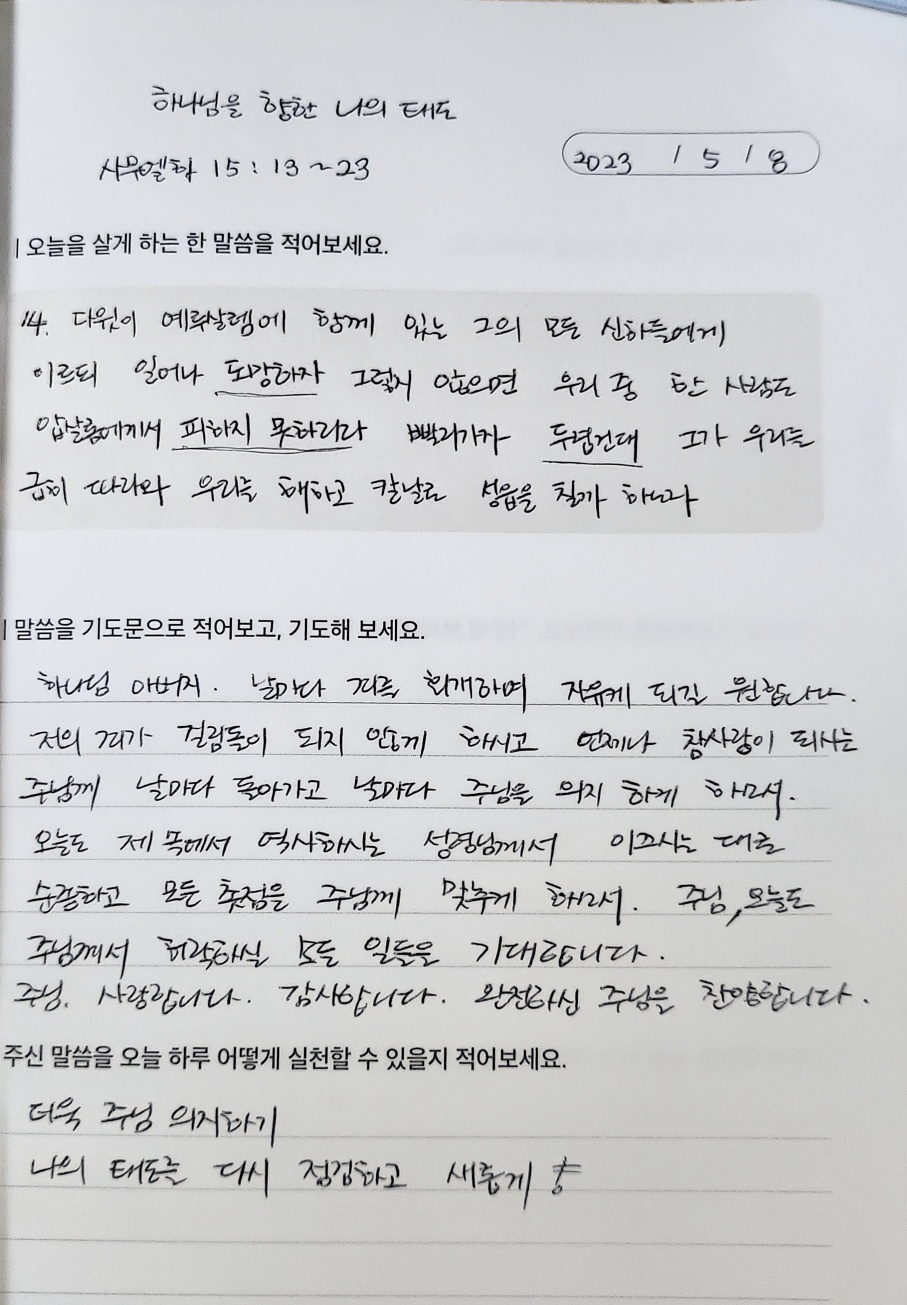 하나님을 향한 나의 태도
사무엘하 15 : 13 ~ 23
2023 / 5 / 8
| 오늘을 살게 하는 한 말씀을 적어보세요.
14. 다윗이 예루살렘에 함께 있는 그의 모든 신하들에게
이르되 일어나 도망하자 그렇지 않으면 우리 중 한 사람도
압살롬에게서 피하지 못하리라 빨리가자 두렵건대 그가 우리를
급히 따라와 우리를 해하고 칼날로 성읍을 칠까 하노라
| 말씀을 기도문으로 적어보고, 기도해 보세요.
하나님 아버지. 날마다 죄를 회개하며 자유케 되길 원합니다.
저의 죄가 걸림돌이 되지 않게 하시고 언제나 참사랑이 되시는
주님께 날마다 돌아가고 날마다 주님을 의지 하게 하소서.
오늘도 제 속에서 역사하시는 성령님께서 이끄시는 대로
순종하고 모든 촛점을 주님께 맞추게 하소서. 주님, 오늘도
주님께서 허락하실 모든 일들을 기대합니다.
주님. 사랑합니다. 감사합니다. 완전하신 주님을 찬양합니다.
주신 말씀을 오늘 하루 어떻게 실천할 수 있을지 적어보세요.
더욱 주님 의지하기
나의 태도를 다시 점검하고 새롭게